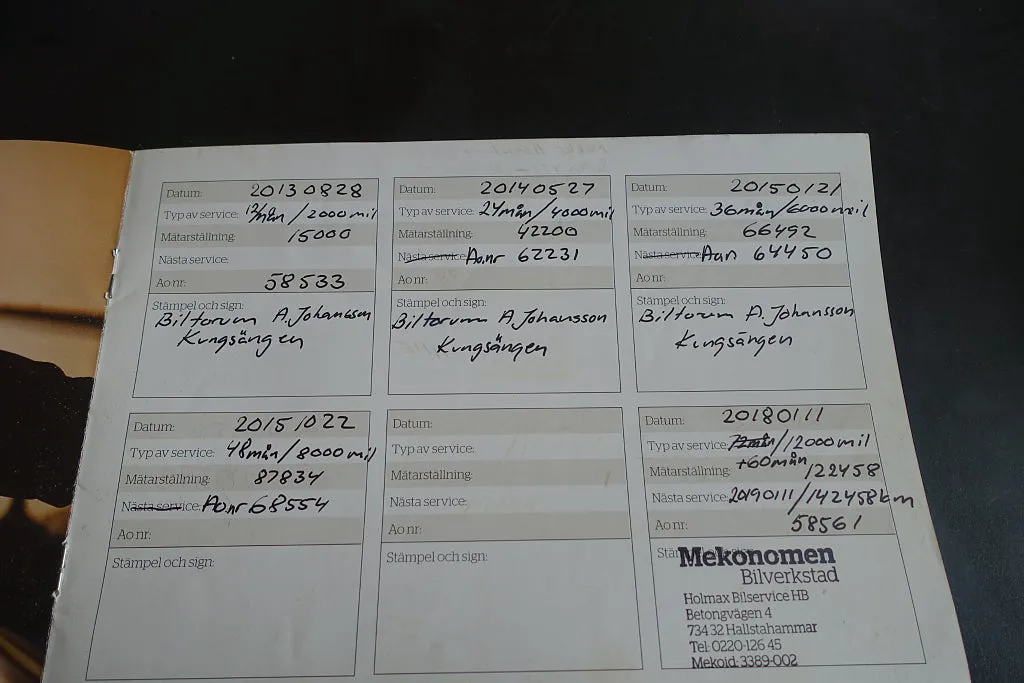 Datum: 20130828
Typ av service: 12mån/2000mil
Mätarställning: 15000
Nästa service:
Ao nr: 58533
Stämpel och sign:
Biltorum A.Johansson
Kungsängen
Datum: 20140527
Typ av service: 24mån/4000mil
Mätarställning: 42200
Nästa service: Ao.nr 62231
Ao nr:
Stämpel och sign:
Biltorum A Johansson
Kungsängen
Datum: 20150121
Typ av service: 36mån/6000mil
Mätarställning: 66492
Nästa service: Aonr 64450
Ao nr:
Stämpel och sign:
Biltorum A. Johansson
Kungsängen
Datum: 20151022
Typ av service: 48mån/8000mil
Mätarställning: 87834
Nästa service: Ao.nr 68554
Ao nr:
Stämpel och sign:
Datum:
Typ av service:
Mätarställning:
Nästa service:
Ao nr:
Stämpel och sign:
Datum: 20180111
Typ av service: 72mån/12000mil
+60mån
Mätarställning: 122458
Nästa service: 20190111/142458km
Ao nr: 58561
Stämpel och sign:
Mekonomen
Bilverkstad
Holmax Bilservice HB
Betongvägen 4
734 32 Hallstahammar
Tel: 0220-126 45
Mekoid: 3389-002